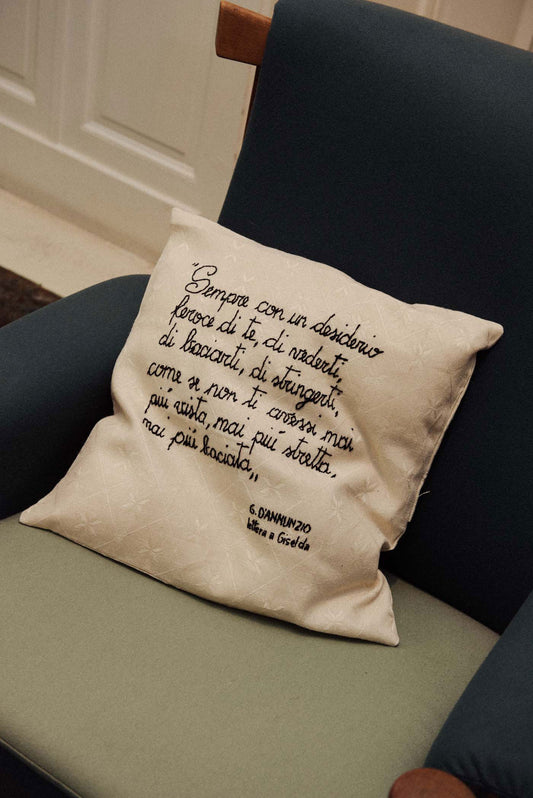 "Sempre con un desiderio
feroce di te, di vederti,
di baciarti, di stringerti,
come se non ti avessi mai
più vista, mai più stretta,
mai più baciata„
G. D'ANNUNZIO
lettera a Giselda